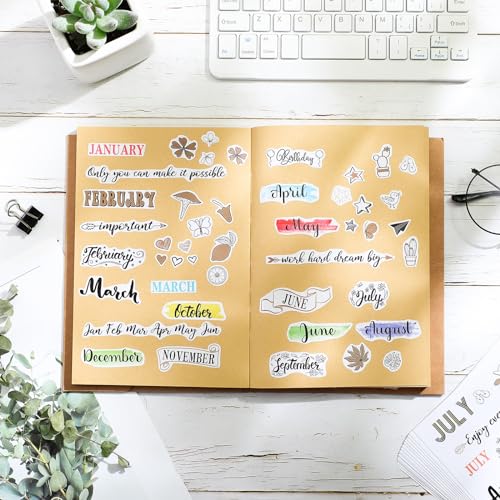 JANUARY
Only you can make it possible
FEBRUARY
important
February
March
MARCH
October
Jan Feb Mar Apr May Jun
December
NOVEMBER
Birthday
April
May
work hard dream big
JUNE
July
June
August
September
JULY
Enjoy eve
JULY